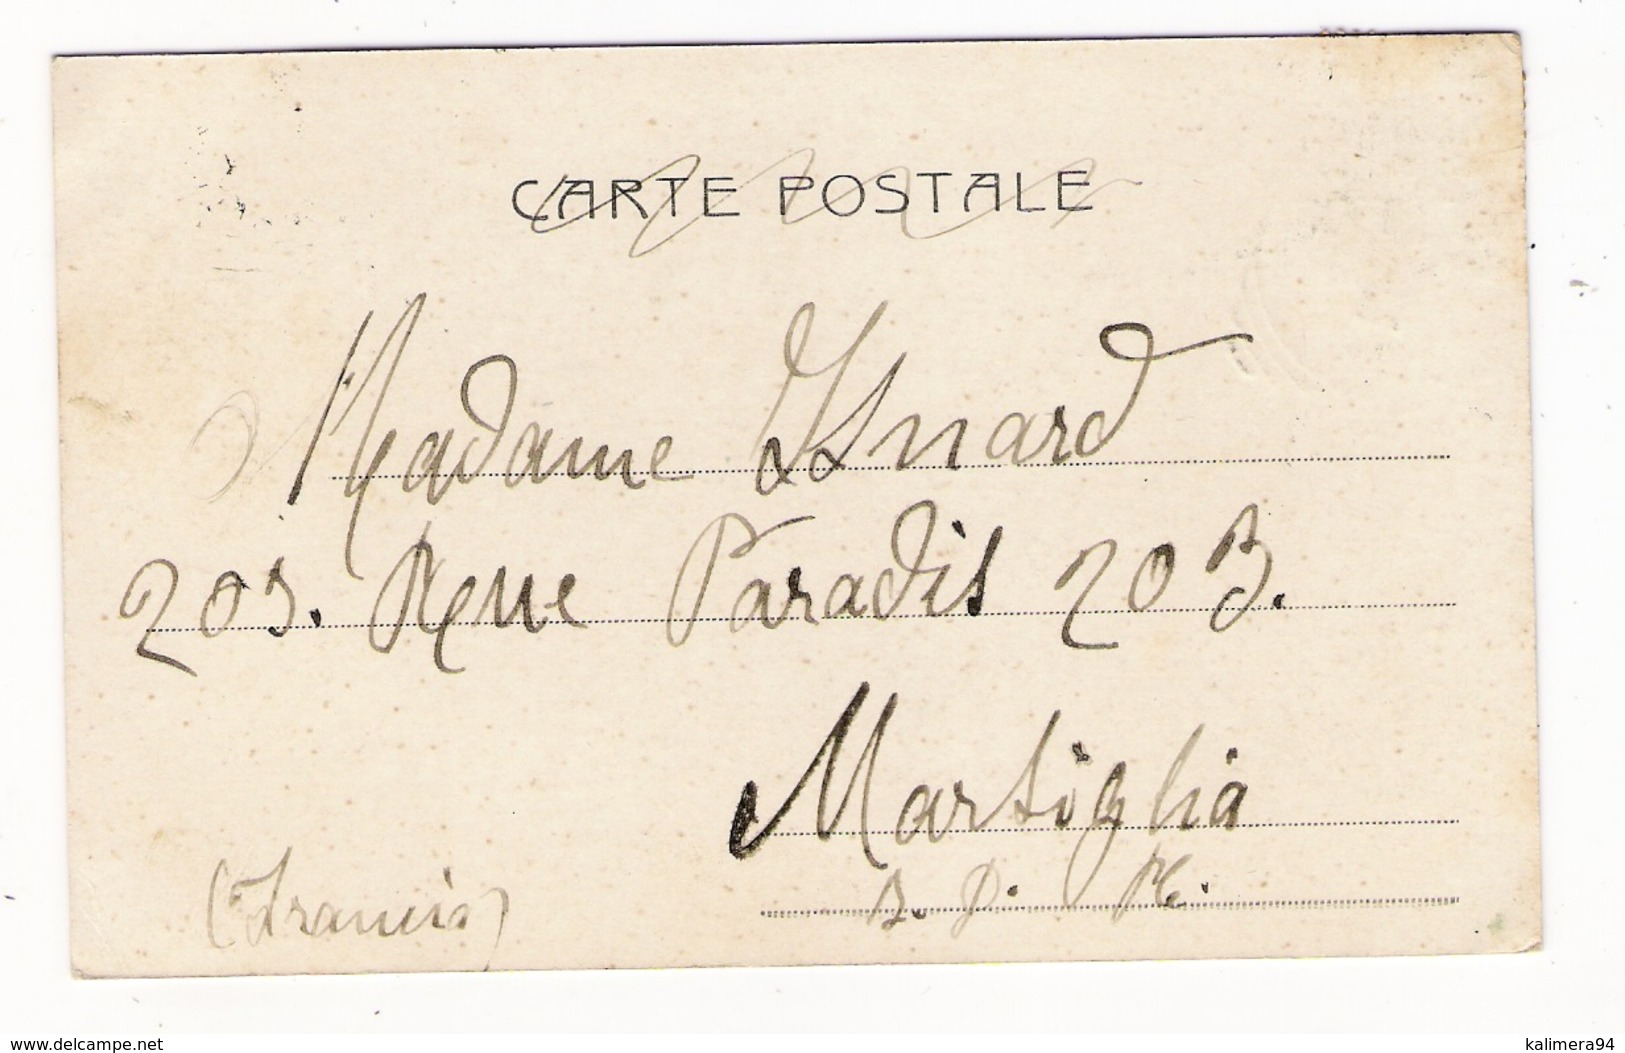 CARTE POSTALE
Madame Isnard
203. Rue Paradis 203.
Marsiglia
B. D. R.
(Francia)
www.delcampe.net
kalimera94